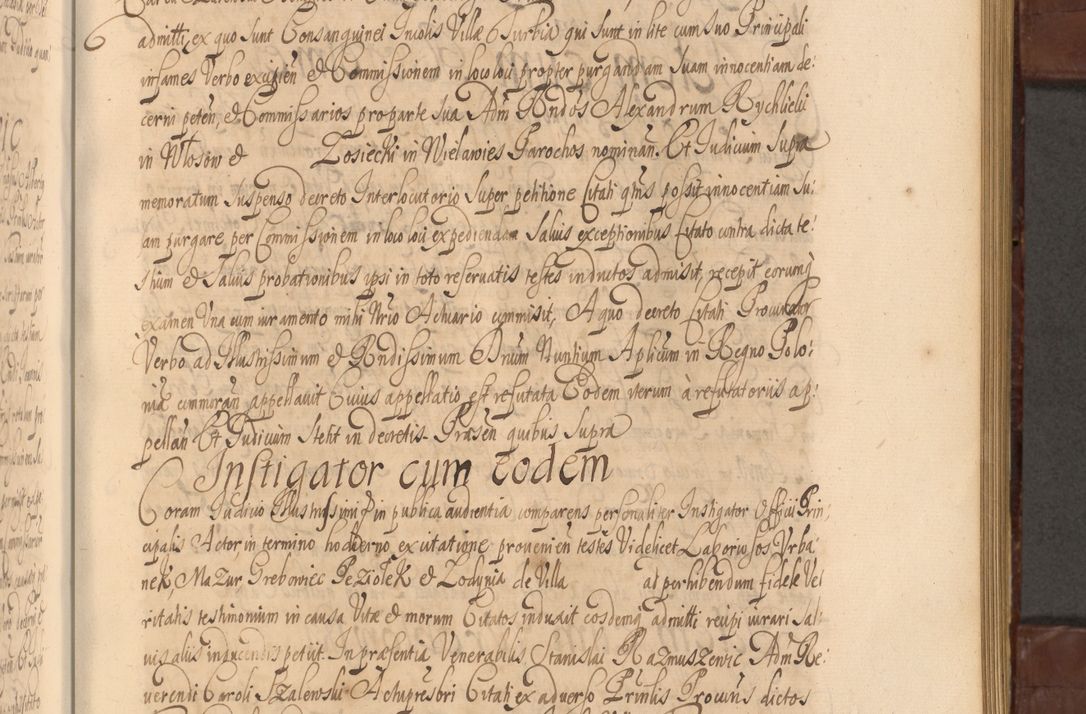 admitti, ex quo sunt Consanguinei Incolis Villæ Turbia qui sunt in lite cum suo Principali
infames Verbo excipien̄ & Commissionem in loco loci propter purgandam suam innocentiam de:
cerni peten̄, & Commissarios pro parte sua Adm̄ Rn̄dos Alexandrum Rychlicki
in Włosow & Zosiecki in Wielawies Parochos nominan̄. Et Judicium supra
memoratum suspenso decreto Interlocutorio super petitione Citati qt̄us possit innocentiam su:
am purgare, per Commissionem in loco loci expediendam salvis exceptionibus Citato contra dicta te:
stium & salvis probationibus ipsi in toto reservatis testes inductos admisit, recepit eorumq̨
examen Una cum iuramento mihi Nr̄io Actuario commisit, A quo decreto Citati Procurator
Verbo ad Illustrissimum & Rn̄dissimum Dn̄um Nuntium Ap̄licum in Regno Polo:
niæ commoran̄ appellavit Cuius appellatio est refutata Eodem iterum à refutatoriis ap:
pellan̄ Et Judicium stetit in decretis. Præsen̄ quibus supra
Instigator cum eodem
Coram Judicio Illustrissimi in publica audientia comparens personaliter Instigator Officii Prin:
cipalis Actor in termino hodierno ex citatione provenien̄ testes Videlicet Laboriosos Urba
nek, Mazur Grebowiec Peziołek & Zodynia de Villa ad perhibendum fidele Ve:
ritatis testimonium in causa Vitæ & morum Citatos induxit eosdemq̨ admitti recipi iurari sal:
vis aliis in pucendis petiit. In præsentia Venerabilis Stanislai Razmuszewic Adm̄ Re:
verendi Caroli Szalewski Actupresori Citati ex adverso Prin̄lis Procur̄is dictos